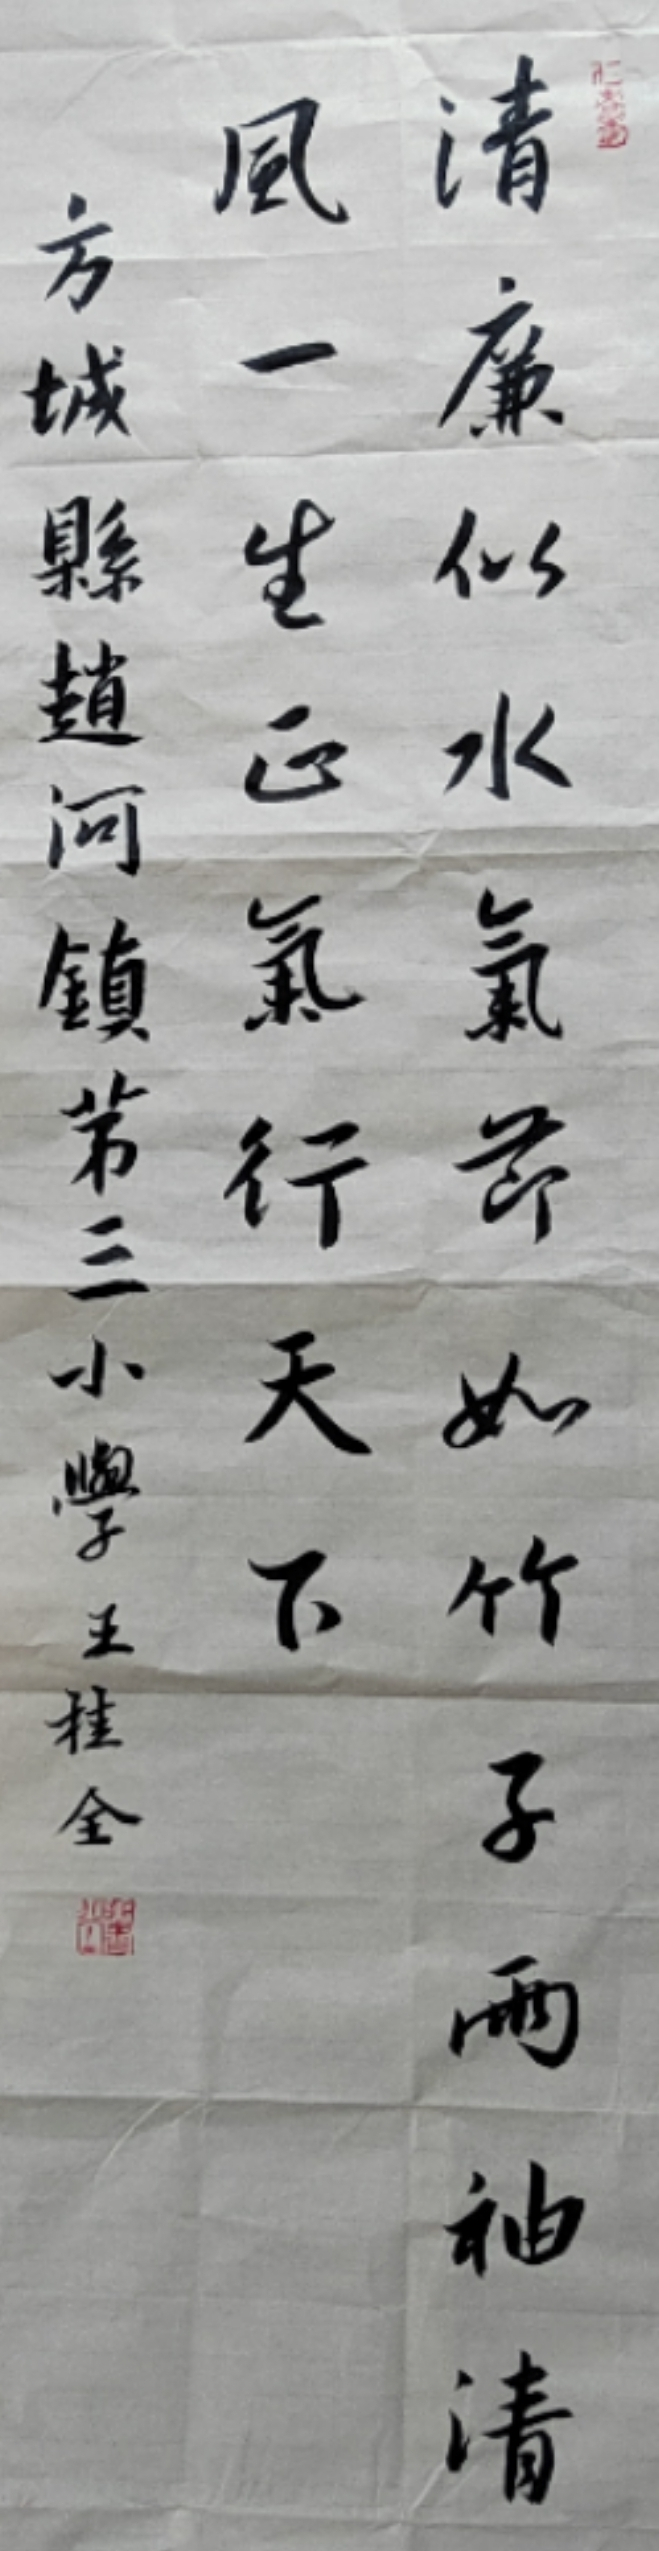 清廉似水氣節如竹子兩袖清
風一生正氣行天下
方城縣趙河鎮第三小學王桂全